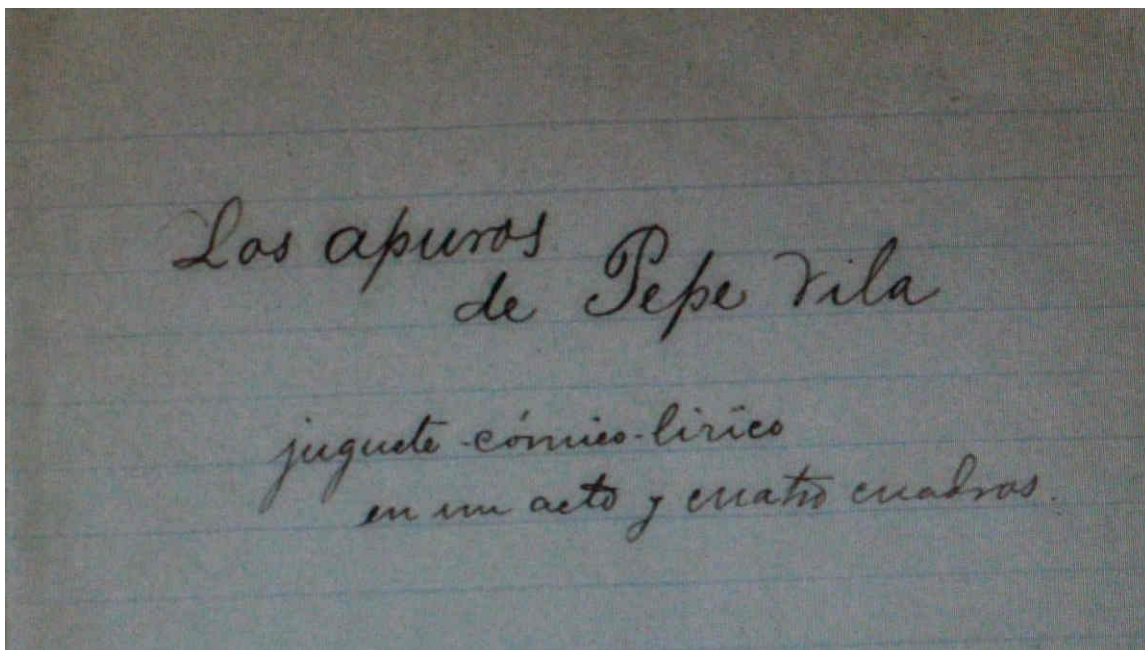 Los apuros
de Pepe Vila
juguete-cómico-lírico
en un acto y cuatro cuadros.